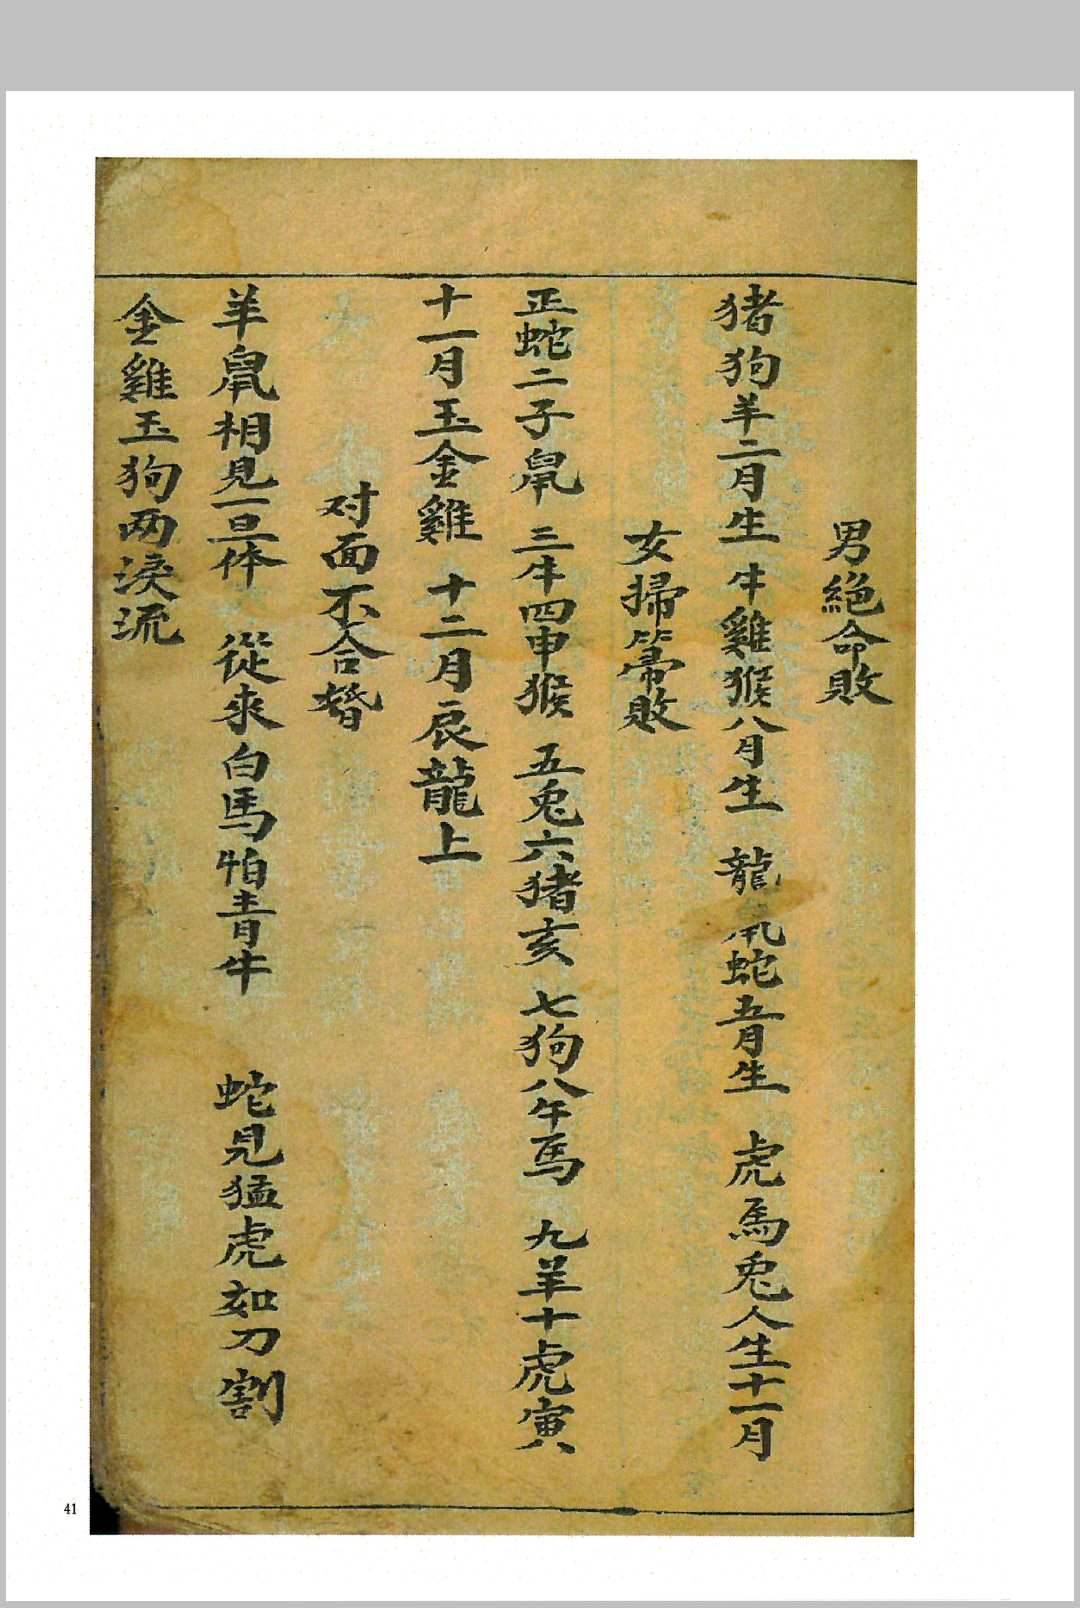 男絶命敗
猪狗羊二月生 牛雞猴八月生 龍鼠蛇五月生 虎馬兎人生十一月
女掃箒敗
正蛇二子鼠 三牛四申猴 五兎六猪亥 七狗八午馬 九羊十虎寅
十一月玉金雞 十二月辰龍上
对面不合婚
羊鼠相見一旦休 從來白馬怕青牛 蛇見猛虎如刀割
金雞玉狗两淚流
41